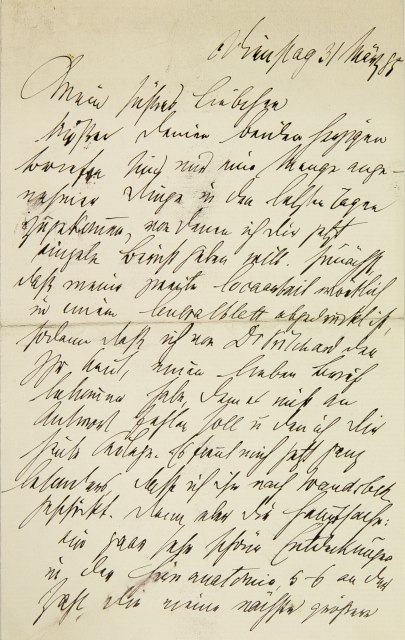 Dienstag 31 März 85
Mein süßes Liebchen
Außer Deinen beiden herzigen
Briefen sind mir eine Menge ange-
nehmer Dinge in den letzten Tagen
zugekommen, von denen ich Dir jetzt
einzeln Bericht geben will. Zunächst
daß meine zweite Cocaarbeit wörtlich
in einem Centralblatt abgedruckt ist,
sodann daß ich von Dr
heut, einen lieben Brief
bekommen habe, dem er mich an
Antwort soll u den ich Dir
heute beilege. Es freut mich jetzt ganz
besonders daß ich ihn nach
geschickt. Dann aber die Hauptsache:
ein paar sehr schöne Entdeckungen
in der Hirnanatomie, 5-6 an der
Zahl, die meine nächste größere